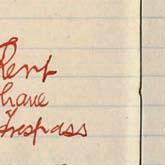 Kept
have
Trespass